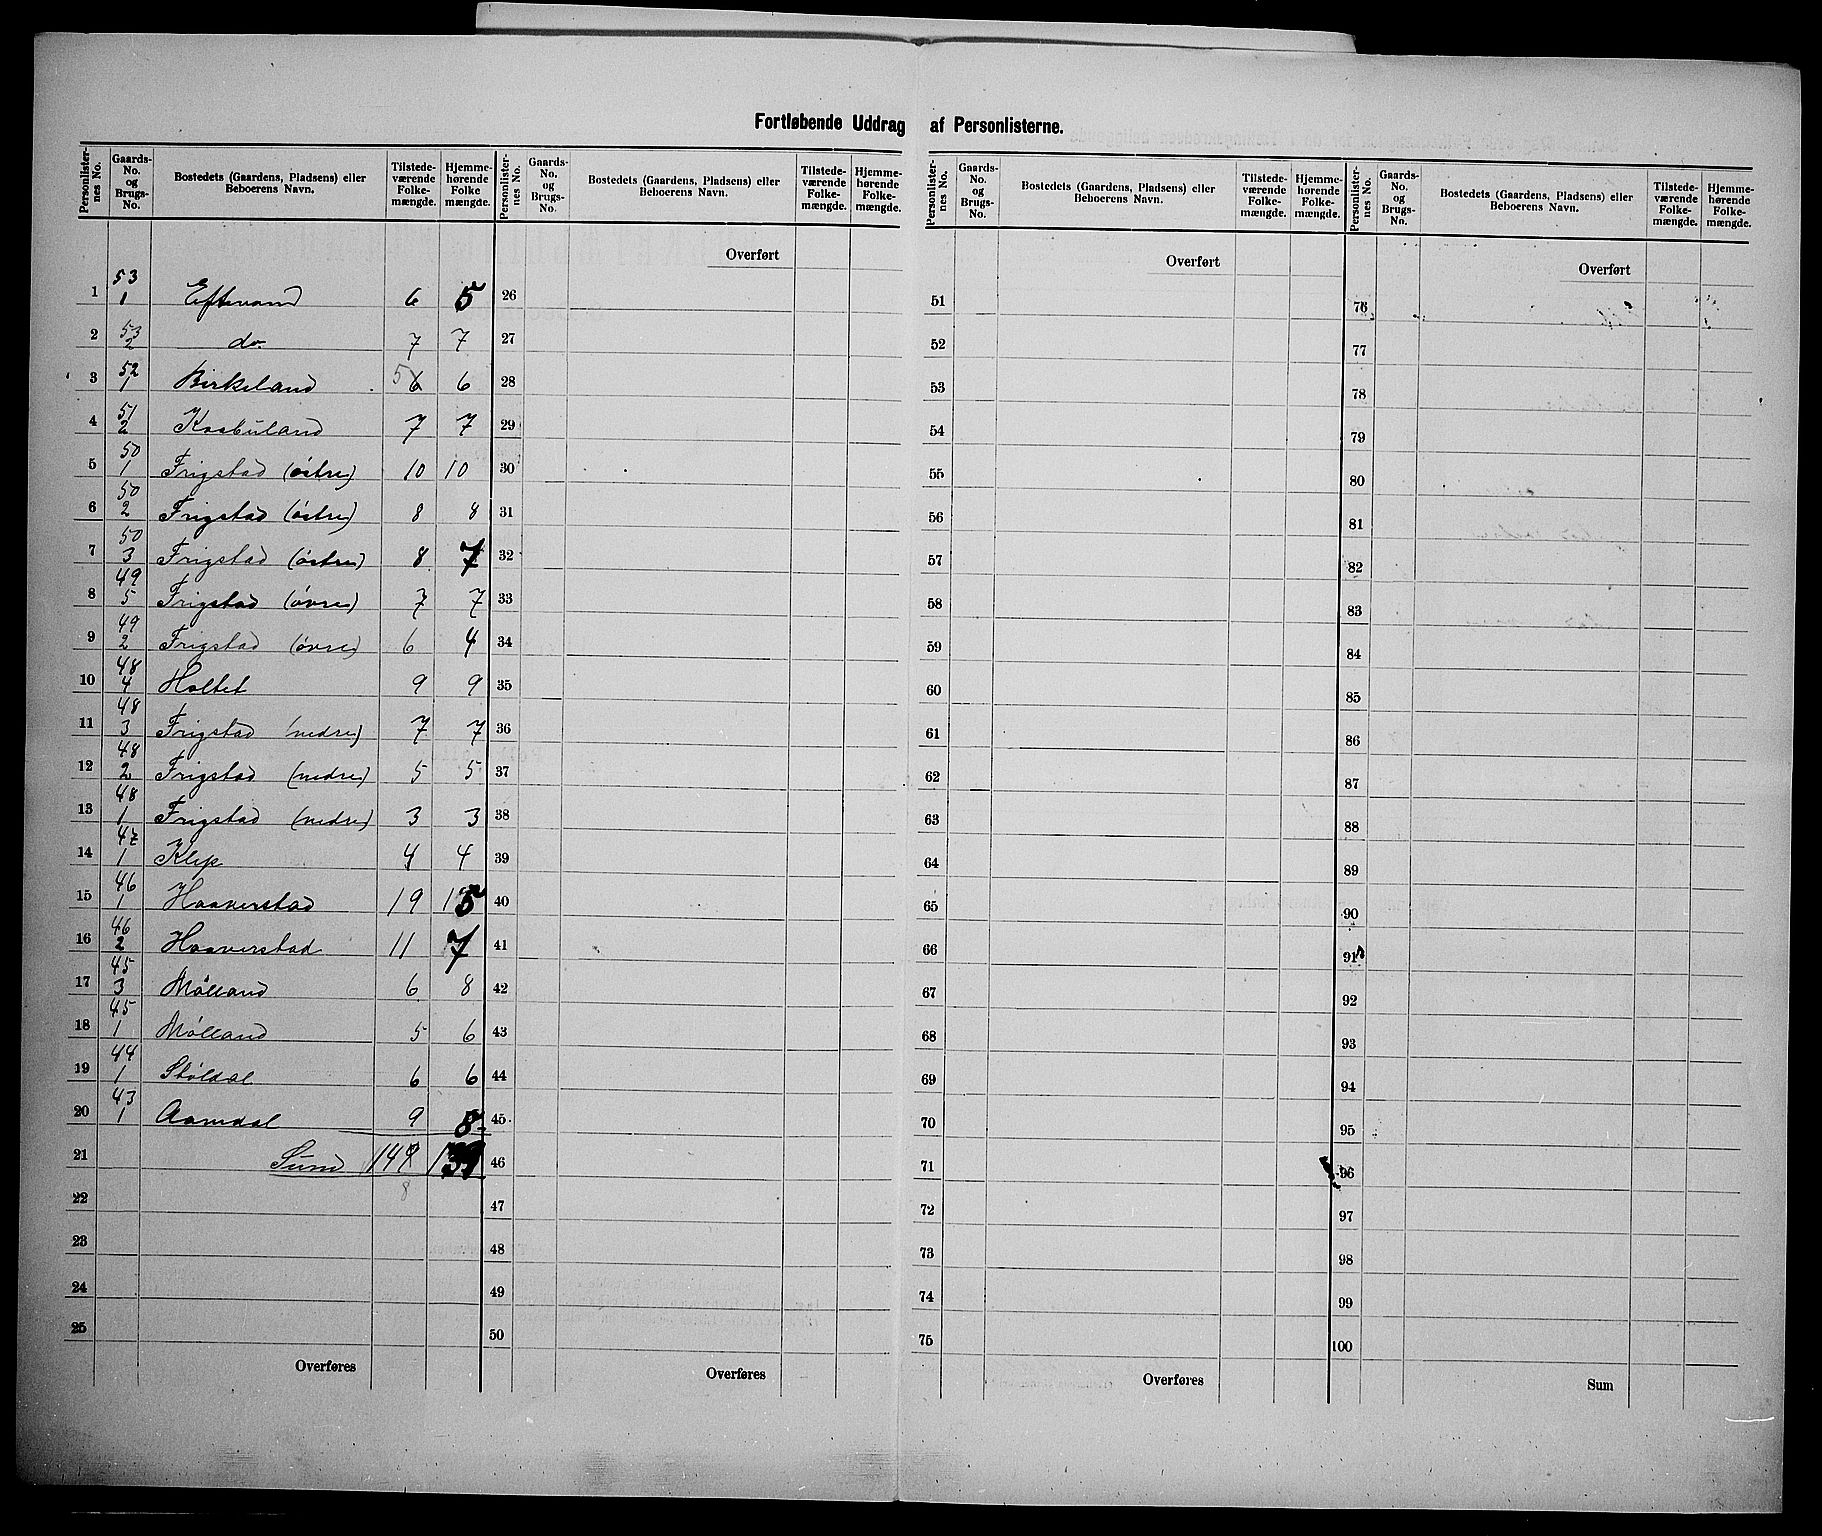 Fortløbende Uddrag af Personlisterne.
Personlister-nes No. | Gaards-No. og Brugs-No. | Bostedets (Gaardens, Pladsens) eller Beboerens Navn. | Tilstede-værende Folke-mængde. | Hjemme-hørende Folke mængde.
1 | 53 1 | Eftevand | 6 | 5
2 | 53 2 | do. | 7 | 7
3 | 52 1 | Birkeland | 5 6 | 6
4 | 51 2 | | 7 | 7
5 | 50 1 | Frigstad (östre) | 10 | 10
6 | 50 2 | Frigstad (östre) | 8 | 8
7 | 50 3 | Frigstad (östre) | 8 | 7
8 | 49 5 | Frigstad (övre) | 7 | 7
9 | 49 2 | Frigstad (övre) | 6 | 4
10 | 48 4 | Holtet | 9 | 9
11 | 48 3 | Frigstad (nedre) | 7 | 7
12 | 48 2 | Frigstad (nedre) | 5 | 5
13 | 48 1 | Frigstad (nedre) | 3 | 3
14 | 47 1 | Klep | 4 | 4
15 | 46 1 | Haaverstad | 19 | 15
16 | 46 2 | Haaverstad | 11 | 7
17 | 45 3 | Mölland | 6 | 8
18 | 45 1 | Mölland | 5 | 6
19 | 44 1 | Stöldal | 6 | 6
20 | 43 1 | Aamdal | 9 | 8
21 | Sum | 149 | 139
22 | 8
23
24
25
Overføres
Personlister-nes No. | Gaards-No. og Brugs-No. | Bostedets (Gaardens, Pladsens) eller Beboerens Navn. | Tilstede-værende Folke-mængde. | Hjemme-hørende Folke-mængde.
Overført
26
27
28
29
30
31
32
33
34
35
36
37
38
39
40
41
42
43
44
45
46
47
48
49
50
Overføres
Personlister-nes No. | Gaards-No. og Brugs-No. | Bostedets (Gaardens, Pladsens) eller Beboerens Navn. | Tilstede-værende Folke-mængde. | Hjemme-hørende Folke-mængde.
Overført
51
52
53
54
55
56
57
58
59
60
61
62
63
64
65
66
67
68
69
70
71
72
73
74
75
Overføres
Personlister-nes No. | Gaards-No. og Brugs-No. | Bostedets (Gaardens, Pladsens) eller Beboerens Navn. | Tilstede-værende Folke-mængde. | Hjemme-hørende Folke-mængde.
Overført
76
77
78
79
80
81
82
83
84
85
86
87
88
89
90
91
92
93
94
95
96
97
98
99
100
Sum